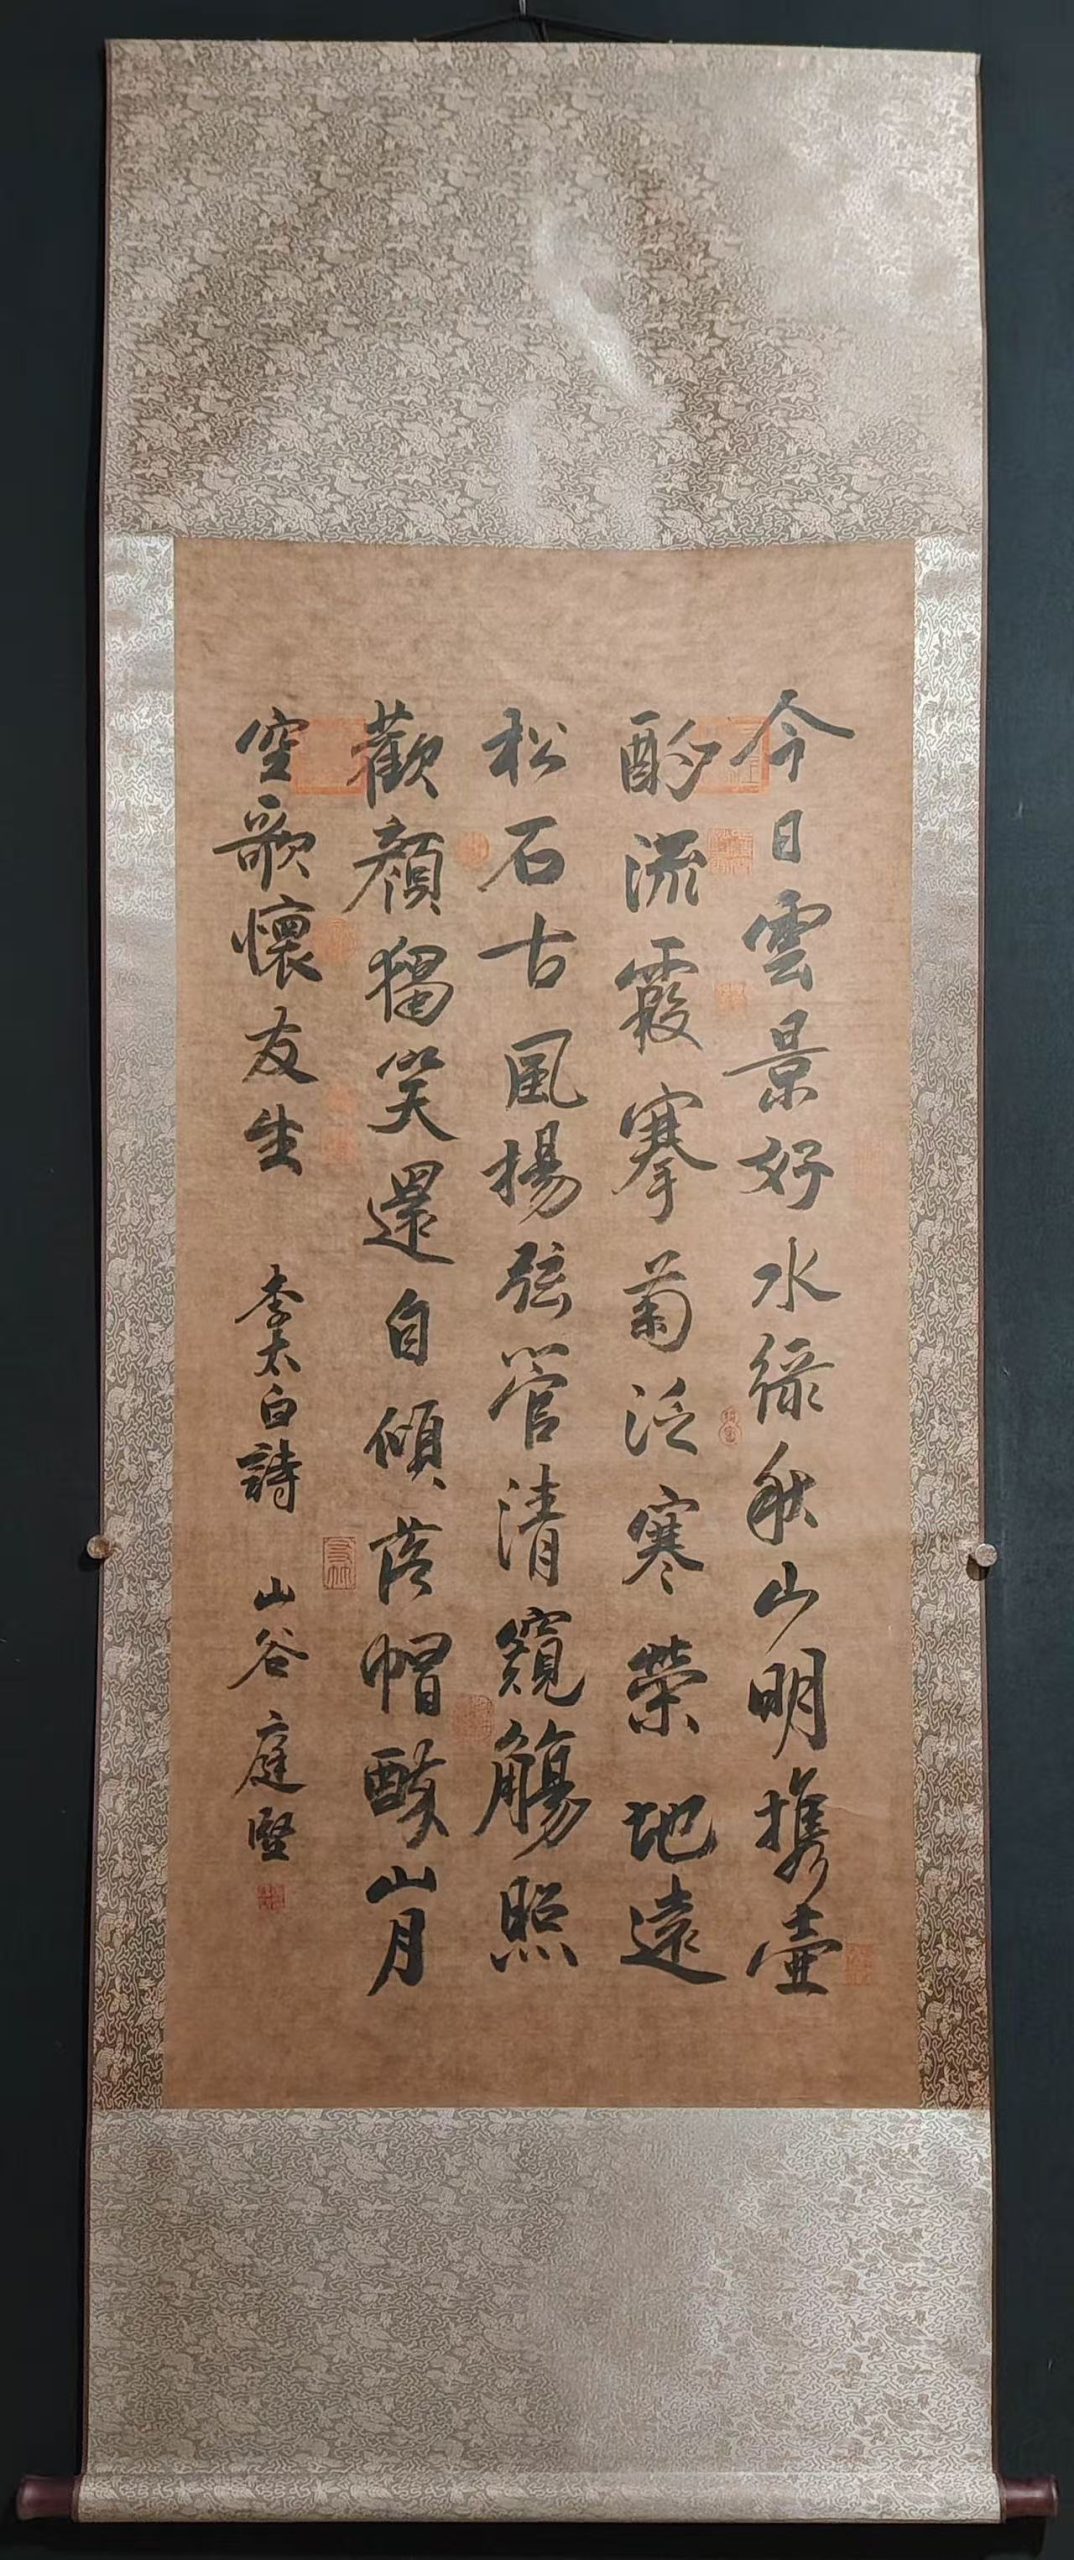 今日雲景好水綠秋山明携壷
酌流霞搴菊泛寒榮地遠
松石古風揚弦管清窺觴照
歡顏獨笑還自傾落帽醉山月
空歌懷友生 李太白詩 山谷庭堅